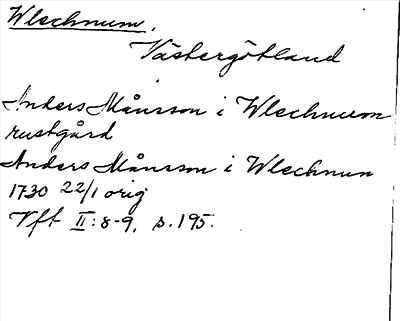 Wlechnum.
Västergötland
Anders Månsson i Wlechnum
rustgård
Anders Månsson i Wlechnun
1730 22/1 orig
Vft II:8-9, s. 195.